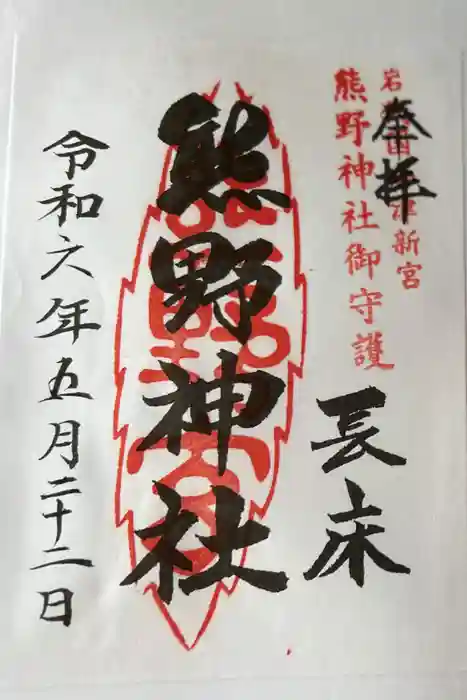 奉拝
岩
新宮
熊野神社御守護
長床
熊野神社
令和六年五月二十二日